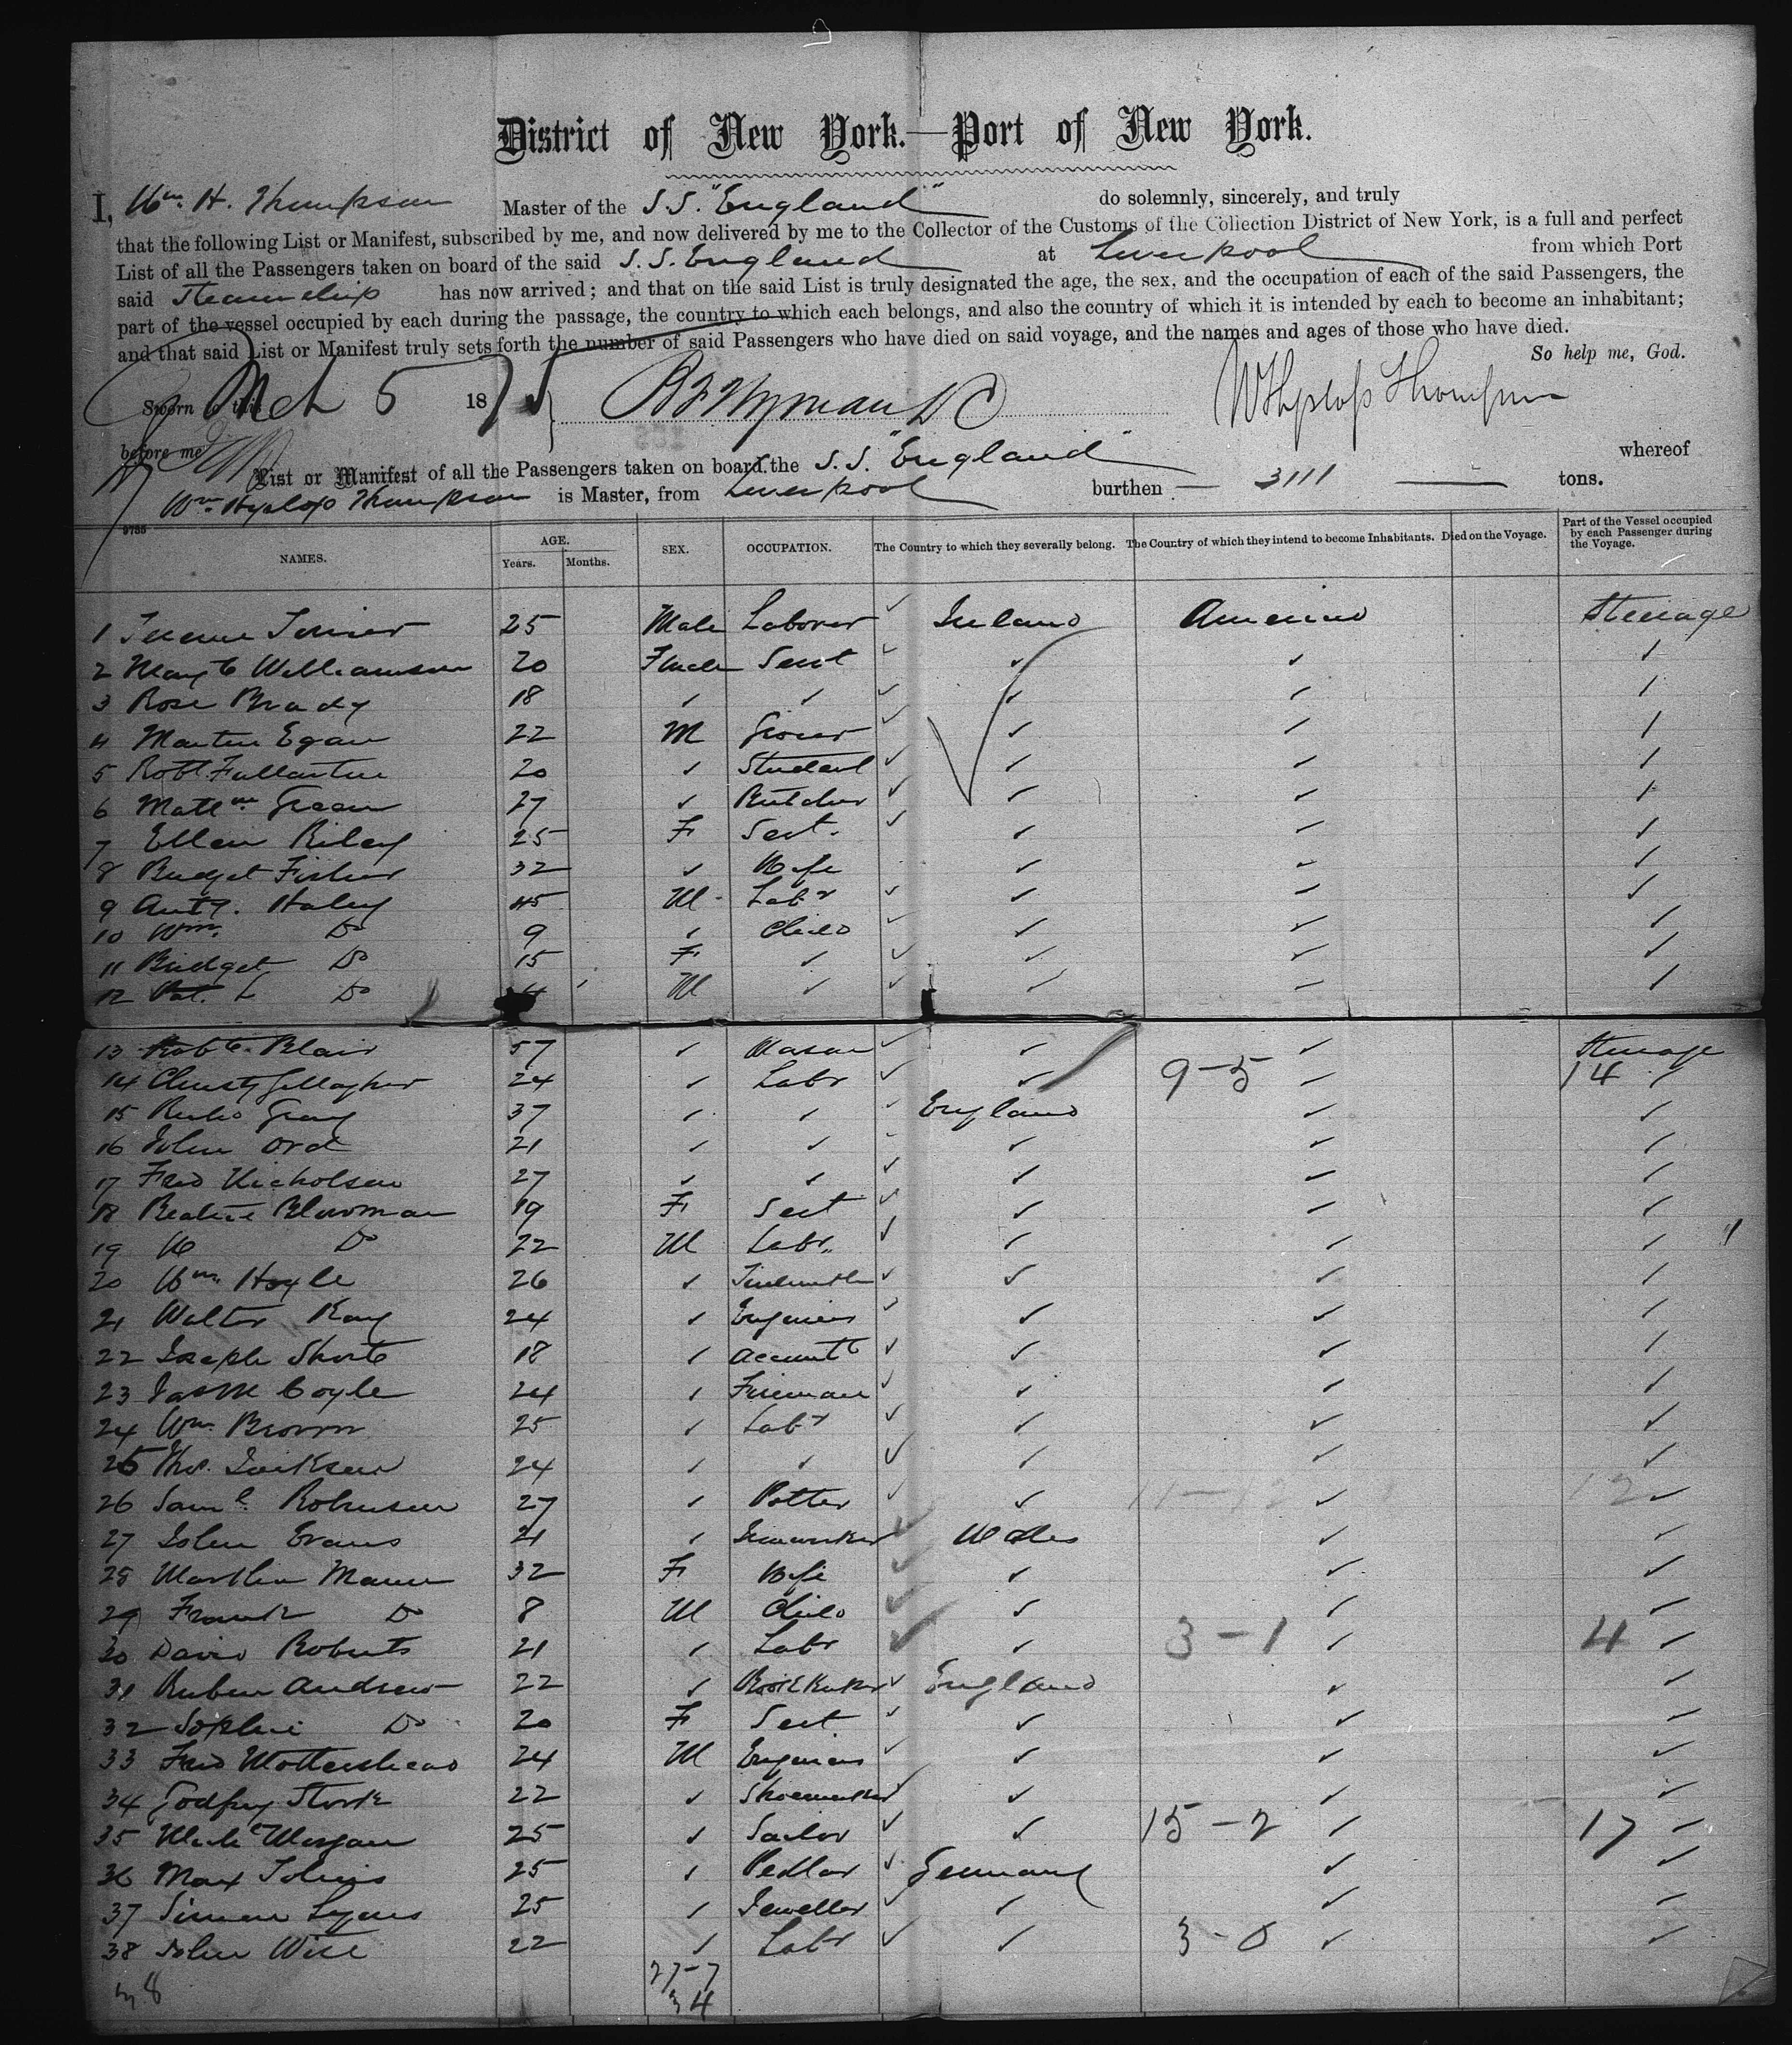 District of New York.—Port of New York.
I, Wm. H. Thompson Master of the S.S. "England" do solemnly, sincerely, and truly
that the following List or Manifest, subscribed by me, and now delivered by me to the Collector of the Customs of the Collection District of New York, is a full and perfect
List of all the Passengers taken on board of the said S.S. England at Liverpool from which Port
said Steamship has now arrived; and that on the said List is truly designated the age, the sex, and the occupation of each of the said Passengers, the
part of the vessel occupied by each during the passage, the country to which each belongs, and also the country of which it is intended by each to become an inhabitant;
and that said List or Manifest truly sets forth the number of said Passengers who have died on said voyage, and the names and ages of those who have died.
So help me, God.
Sworn to this Mch 5 1875 B F Wyman DC W Hyslop Thompson
before me
List or Manifest of all the Passengers taken on board the S.S. "England" whereof
Wm Hyslop Thompson is Master, from Liverpool burthen — 3111 — tons.
9735
NAMES. AGE. Years. Months. SEX. OCCUPATION. The Country to which they severally belong. The Country of which they intend to become Inhabitants. Died on the Voyage. Part of the Vessel occupied by each Passenger during the Voyage.
1 25 Male Laborer Ireland America Steerage
2 Margt Williamson 20 Female Sevt
3 Rose Brady 18
4 Martin Egan 22 M Grocer
5 Robt Fullarton 20 Student
6 Mattw Green 27 Butcher
7 Ellen Riley 25 F Sevt.
8 Bridget Fisher 32 Wife
9 Anty. Haley 45 M Labr
10 Wm. Do 9 Child
11 Bridget Do 15 F
12 Pat. L Do M
13 Robt. Blair 57 Mason Steerage
14 Christy Gallagher 24 Labr 9-5 14
15 Gray 37 England
16 John Ord 21
17 Fred Nicholson 27
18 Beatrice Plowman 19 F Sevt
19 W Do 22 M Labr.
20 Wm. Hoyle 26 Tinsmith
21 Walter Kay 24 Engineer
22 Joseph Short 18 Accountt
23 Jas McCoyle 24 Fireman
24 Wm. Brown 25 Labr
25 Thos. Jackson 24
26 Saml. Robinson 27 Potter 11-12 12
27 John Evans 21 Ironworker Wales
28 Martha Mann 32 F Wife
29 Frank Do 8 M Child
30 David Roberts 21 Labr 3-1 4
31 Ruben Andrew 22 Bookkeeper England
32 Sophie Do 20 F Sevt
33 Fred Mottershead 24 M Engineer
34 Godfrey Stork 22 Shoemaker
35 Morgan 25 Sailor 15-2 17
36 Max Tobias 25 Pedlar Germany
37 Simon Lyons 25 Jeweller
38 John Wise 22 Labr 3-0
38 27-7
34